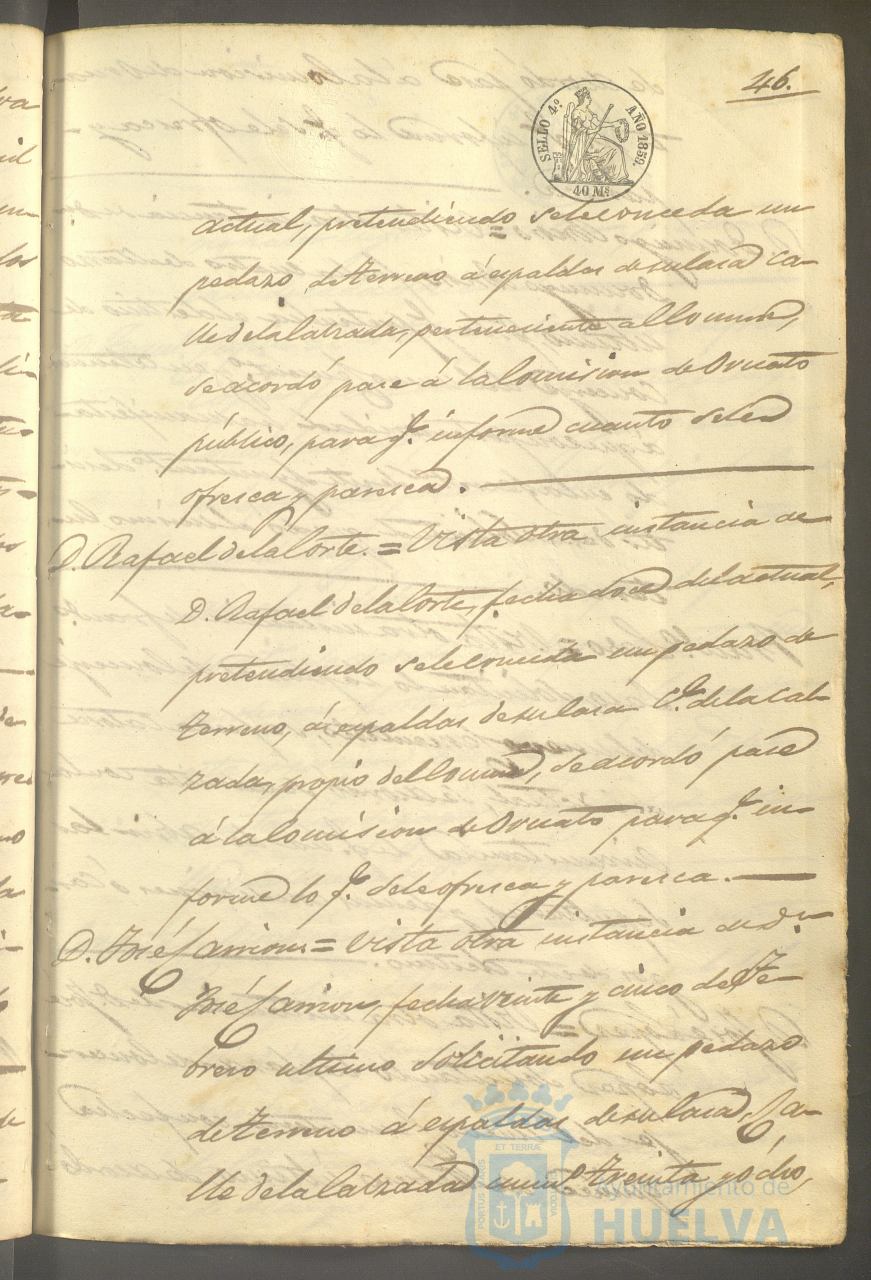 46.
SELLO 4.º AÑO 1859.
40 Ms
actual, pretendiendo sele conceda un
pedazo de terreno á espaldas de su casa ca-
lle de la Calzada, perteneciente al Comun,
se acordó pase á la Comision de Ornato
público, para q.e informe cuanto sele
ofresca y paresca.
D. Rafael de la Corte = Vista otra instancia de
D. Rafael de la Corte, fecha doce del actual,
pretendiendo sele conceda un pedazo de
terreno, á espaldas de su casa C.e de la Cal-
zada, propio del Comun, se acordó pase
á la Comision de Ornato para q.e in-
forme lo q.e sele ofresca y paresca.
D. José Carrion = Vista otra instancia de D.n
José Carrion, fecha veinte y cinco de Fe-
brero ultimo solicitando un pedazo
de terreno á espaldas de su casa, Ca-
lle de la Calzada num.o treinta y ocho,
ET TERRÆ
PORTUS
CUSTODIA
Ayuntamiento de
HUELVA